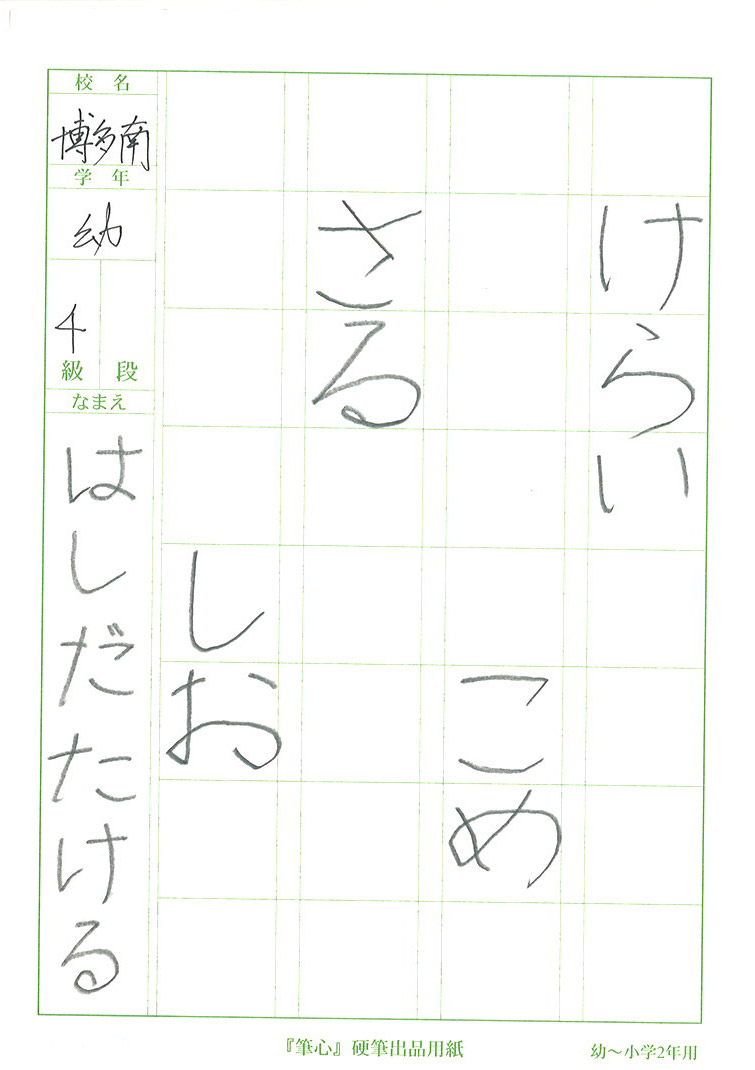 けらい
こめ
さる
しお
校名
博多南
学年
幼
4
級 段
なまえ
はしだたける
『筆心』硬筆出品用紙
幼～小学2年用